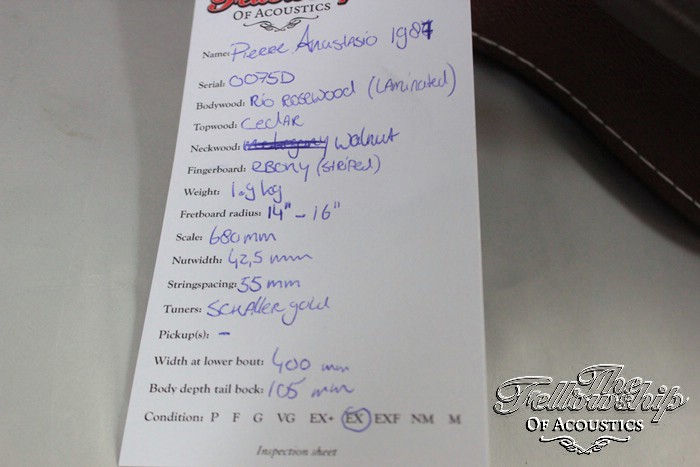 Fellowship
OF ACOUSTICS
Name: Pierre Anastasio 1987
Serial: 0075D
Bodywood: Rio Rosewood (Laminated)
Topwood: Cedar
Neckwood: walnut
Fingerboard: ebony (striped)
Weight: 1.9 kg
Fretboard radius: 14" - 16"
Scale: 680 mm
Nutwidth: 42,5 mm
Stringspacing: 55 mm
Tuners: Schaller gold
Pickup(s): -
Width at lower bout: 400 mm
Body depth tail bock: 105 mm
Condition: P F G VG EX+ EX EXF NM M
Inspection sheet
The
Fellowship
OF ACOUSTICS